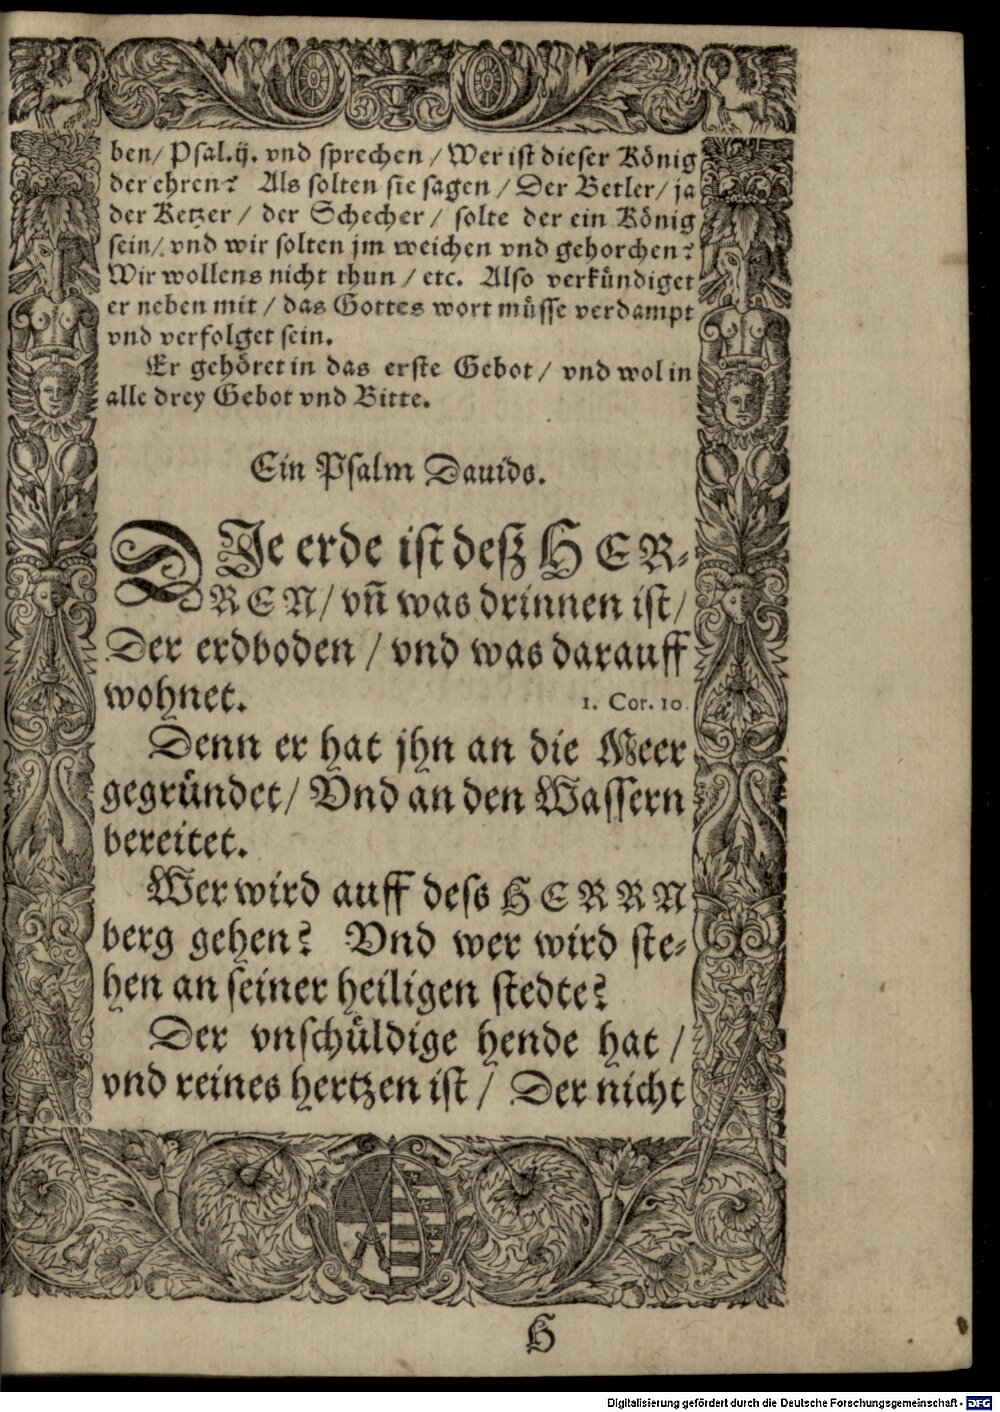 ben/ Psal.ij. vnd sprechen / Wer ist dieser König
der ehren? Als solten sie sagen / Der Betler/ ja
der Ketzer / der Schecher / solte der ein König
sein/ vnd wir solten jm weichen vnd gehorchen?
Wir wollens nicht thun / etc. Also verkündiget
er neben mit / das Gottes wort müsse verdampt
vnd verfolget sein.
Er gehöret in das erste Gebot / vnd wol in
alle drey Gebot vnd Bitte.
Ein Psalm Dauids.
DJe erde ist deß HER-
REN/ vñ was drinnen ist/
Der erdboden / vnd was darauff
wohnet. 1. Cor. 10
Denn er hat jhn an die Meer
gegründet/ Vnd an den Wassern
bereitet.
Wer wird auff dess HERRN
berg gehen? Vnd wer wird ste-
hen an seiner heiligen stedte?
Der vnschüldige hende hat /
vnd reines hertzen ist / Der nicht
H
Digitalisierung gefördert durch die Deutsche Forschungsgemeinschaft - DFG